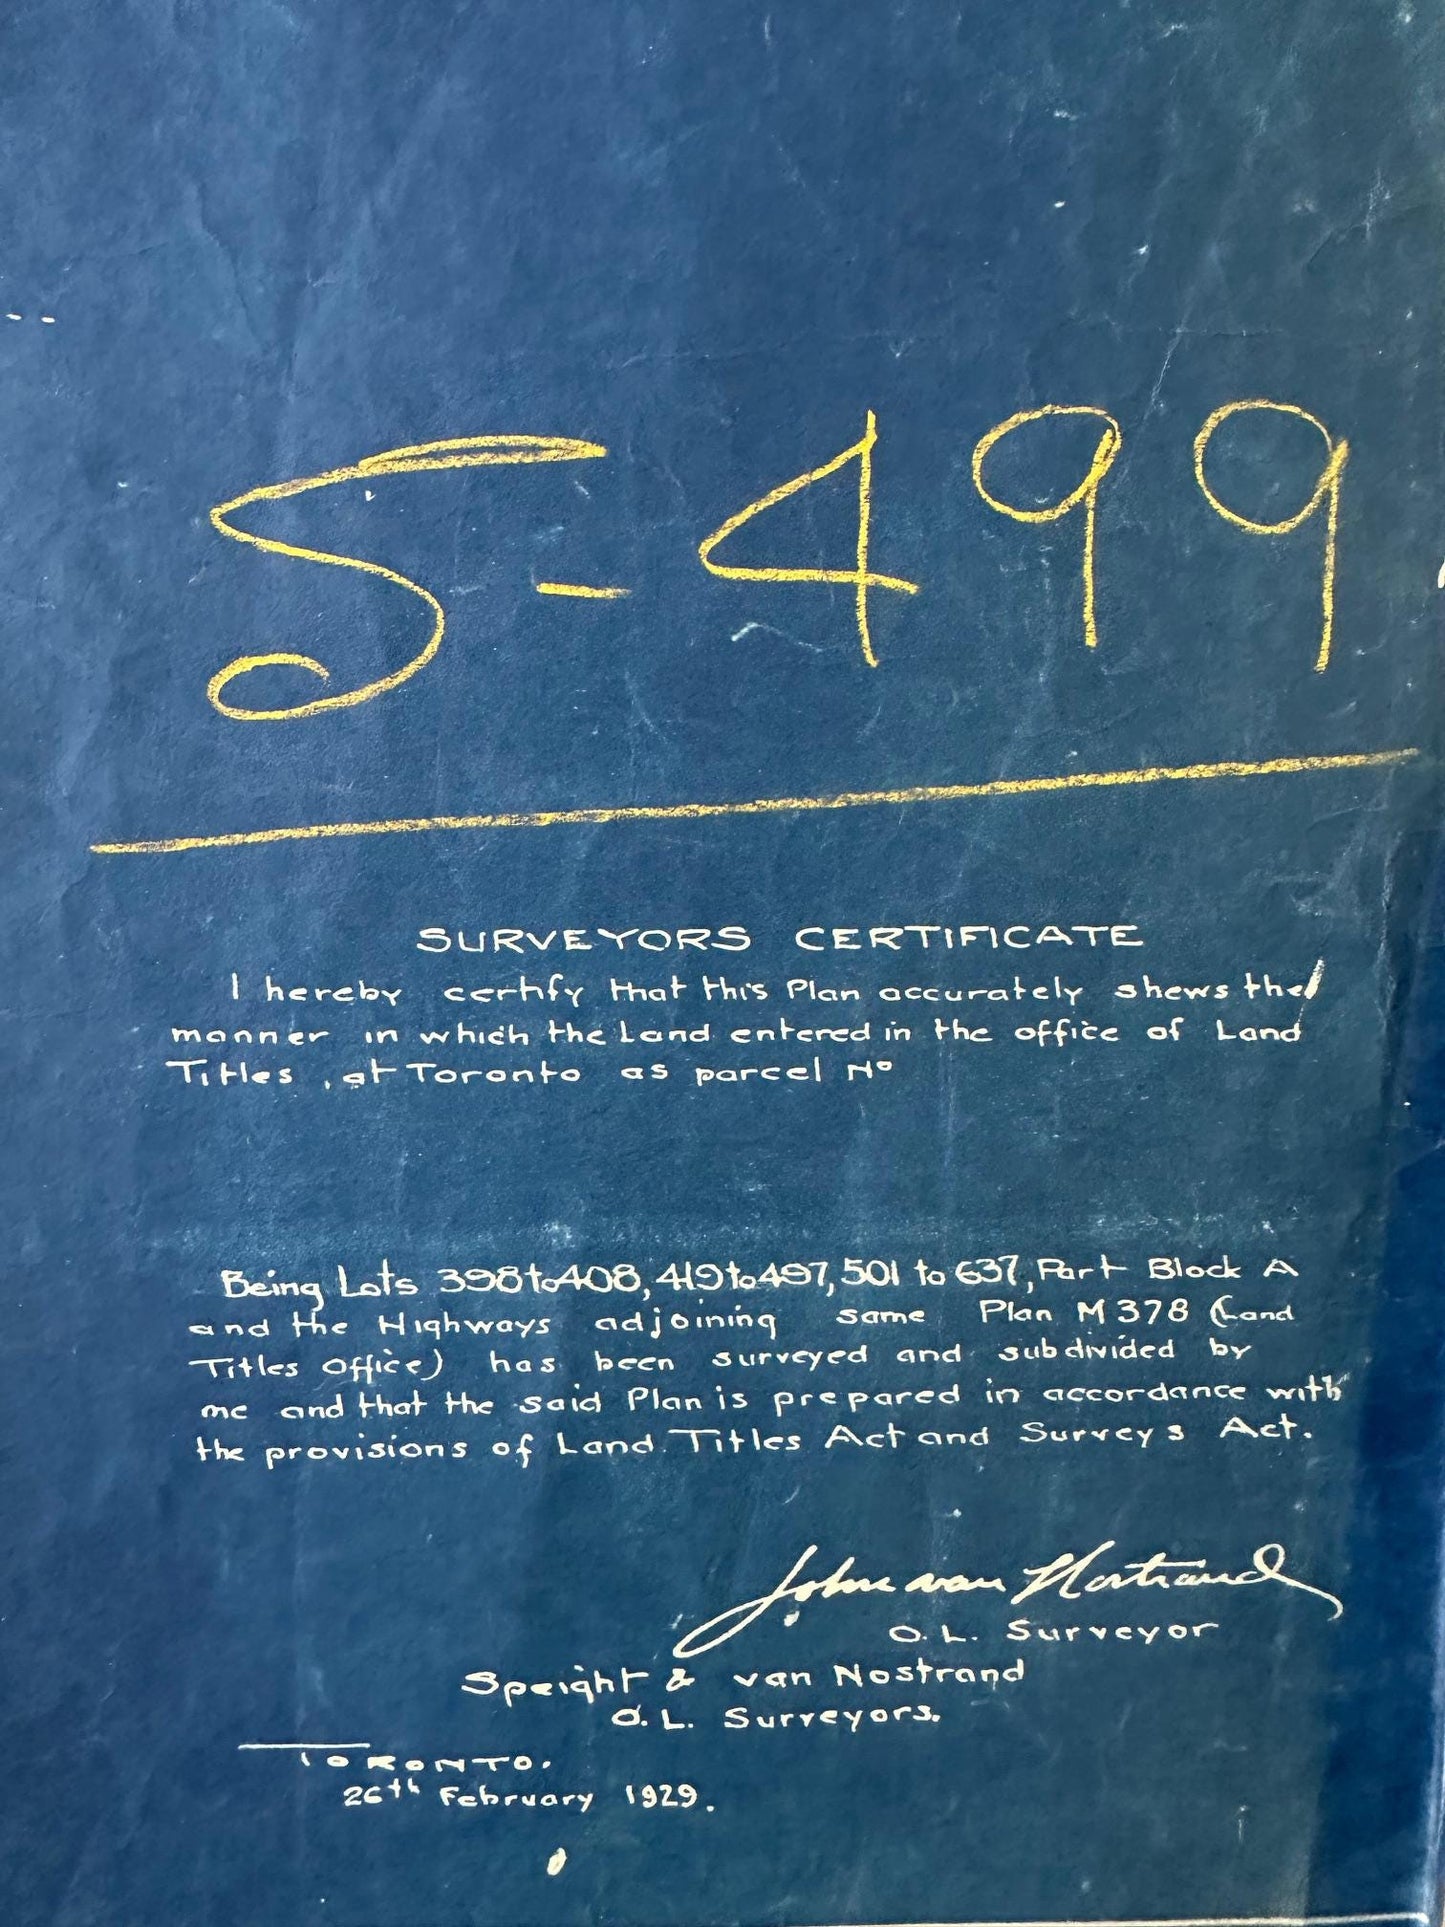 S-499
SURVEYORS CERTIFICATE
I hereby certify that this Plan accurately shews the
manner in which the Land entered in the office of Land
Titles, at Toronto as parcel Nº
Being Lots 398 to 408, 419 to 497, 501 to 637, Part Block A
and the Highways adjoining same Plan M 378 (Land
Titles Office) has been surveyed and subdivided by
me and that the said Plan is prepared in accordance with
the provisions of Land Titles Act and Surveys Act.
John van Nostrand
O. L. Surveyor
Speight & van Nostrand
O. L. Surveyors.
TORONTO.
26th February 1929.